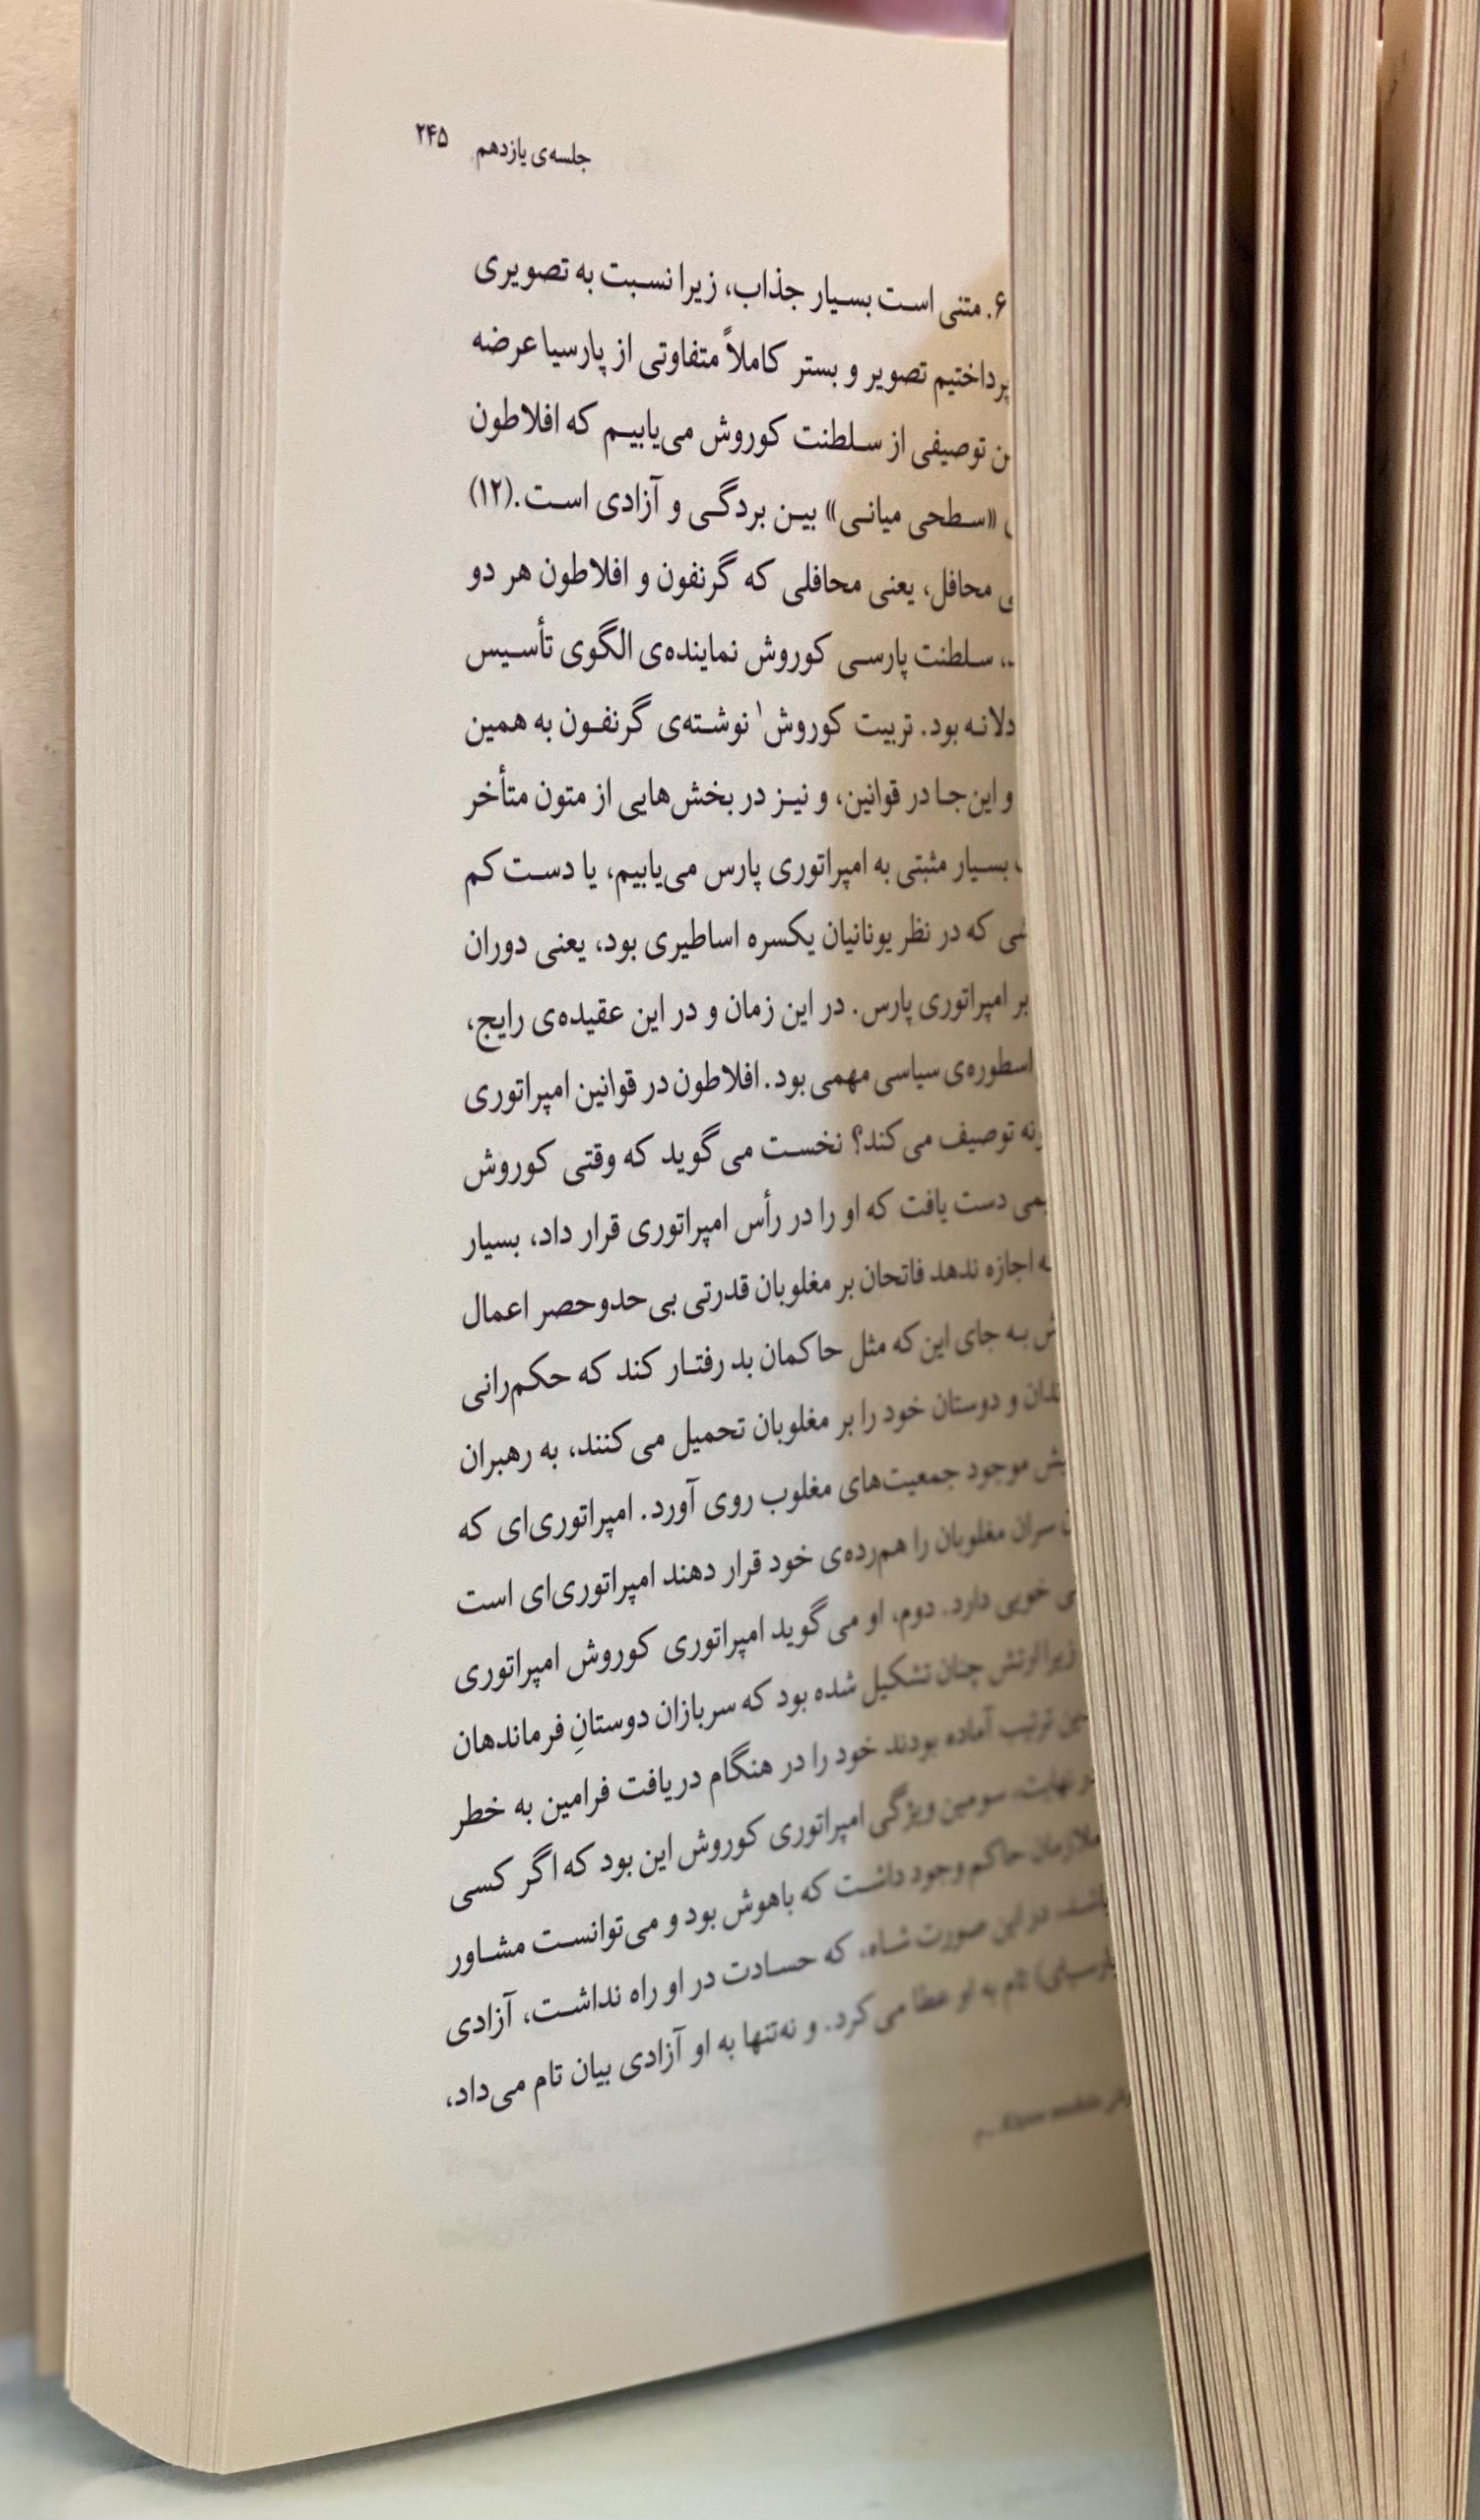 جلسه‌ی یازدهم ۲۴۵
۶. متنی است بسیار جذاب، زیرا نسبت به تصویری
پرداختیم تصویر و بستر کاملاً متفاوتی از پارسیا عرضه
توصیفی از سلطنت کوروش می‌یابیم که افلاطون
«سطحی میانی» بین بردگی و آزادی است.(۱۲)
محافل، یعنی محافلی که گزنفون و افلاطون هر دو
سلطنت پارسی کوروش نماینده‌ی الگوی تأسیس
بود. تربیت کوروش۱ نوشته‌ی گزنفون به همین
و این‌جا در قوانین، و نیز در بخش‌هایی از متون متأخر
بسیار مثبتی به امپراتوری پارس می‌یابیم، یا دست کم
که در نظر یونانیان یکسره اساطیری بود، یعنی دوران
بر امپراتوری پارس. در این زمان و در این عقیده‌ی رایج،
اسطوره‌ی سیاسی مهمی بود. افلاطون در قوانین امپراتوری
توصیف می‌کند؟ نخست می‌گوید که وقتی کوروش
دست یافت که او را در رأس امپراتوری قرار داد، بسیار
اجازه ندهد فاتحان بر مغلوبان قدرتی بی‌حدوحصر اعمال
به جای این‌که مثل حاکمان بد رفتار کند که حکم‌رانی
و دوستان خود را بر مغلوبان تحمیل می‌کنند، به رهبران
موجود جمعیت‌های مغلوب روی آورد. امپراتوری‌ای که
سران مغلوبان را هم‌رده‌ی خود قرار دهند امپراتوری‌ای است
خوبی دارد. دوم، او می‌گوید امپراتوری کوروش امپراتوری
زیرا ارتش چنان تشکیل شده بود که سربازان دوستانِ فرماندهان
ترتیب آماده بودند خود را در هنگام دریافت فرامین به خطر
نهایت، سومین ویژگی امپراتوری کوروش این بود که اگر کسی
ملازمان حاکم وجود داشت که باهوش بود و می‌توانست مشاور
در این صورت شاه، که حسادت در او راه نداشت، آزادی
تام به او عطا می‌کرد. و نه‌تنها به او آزادی بیان تام می‌داد،